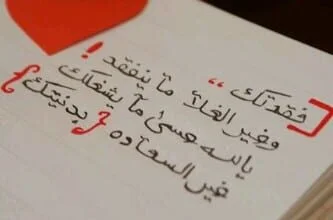 [ فقدتك ،، وغير الغلا ما ينفقد !
يالله عسى ما يشغلك
غير السعاده { بدنيتك }